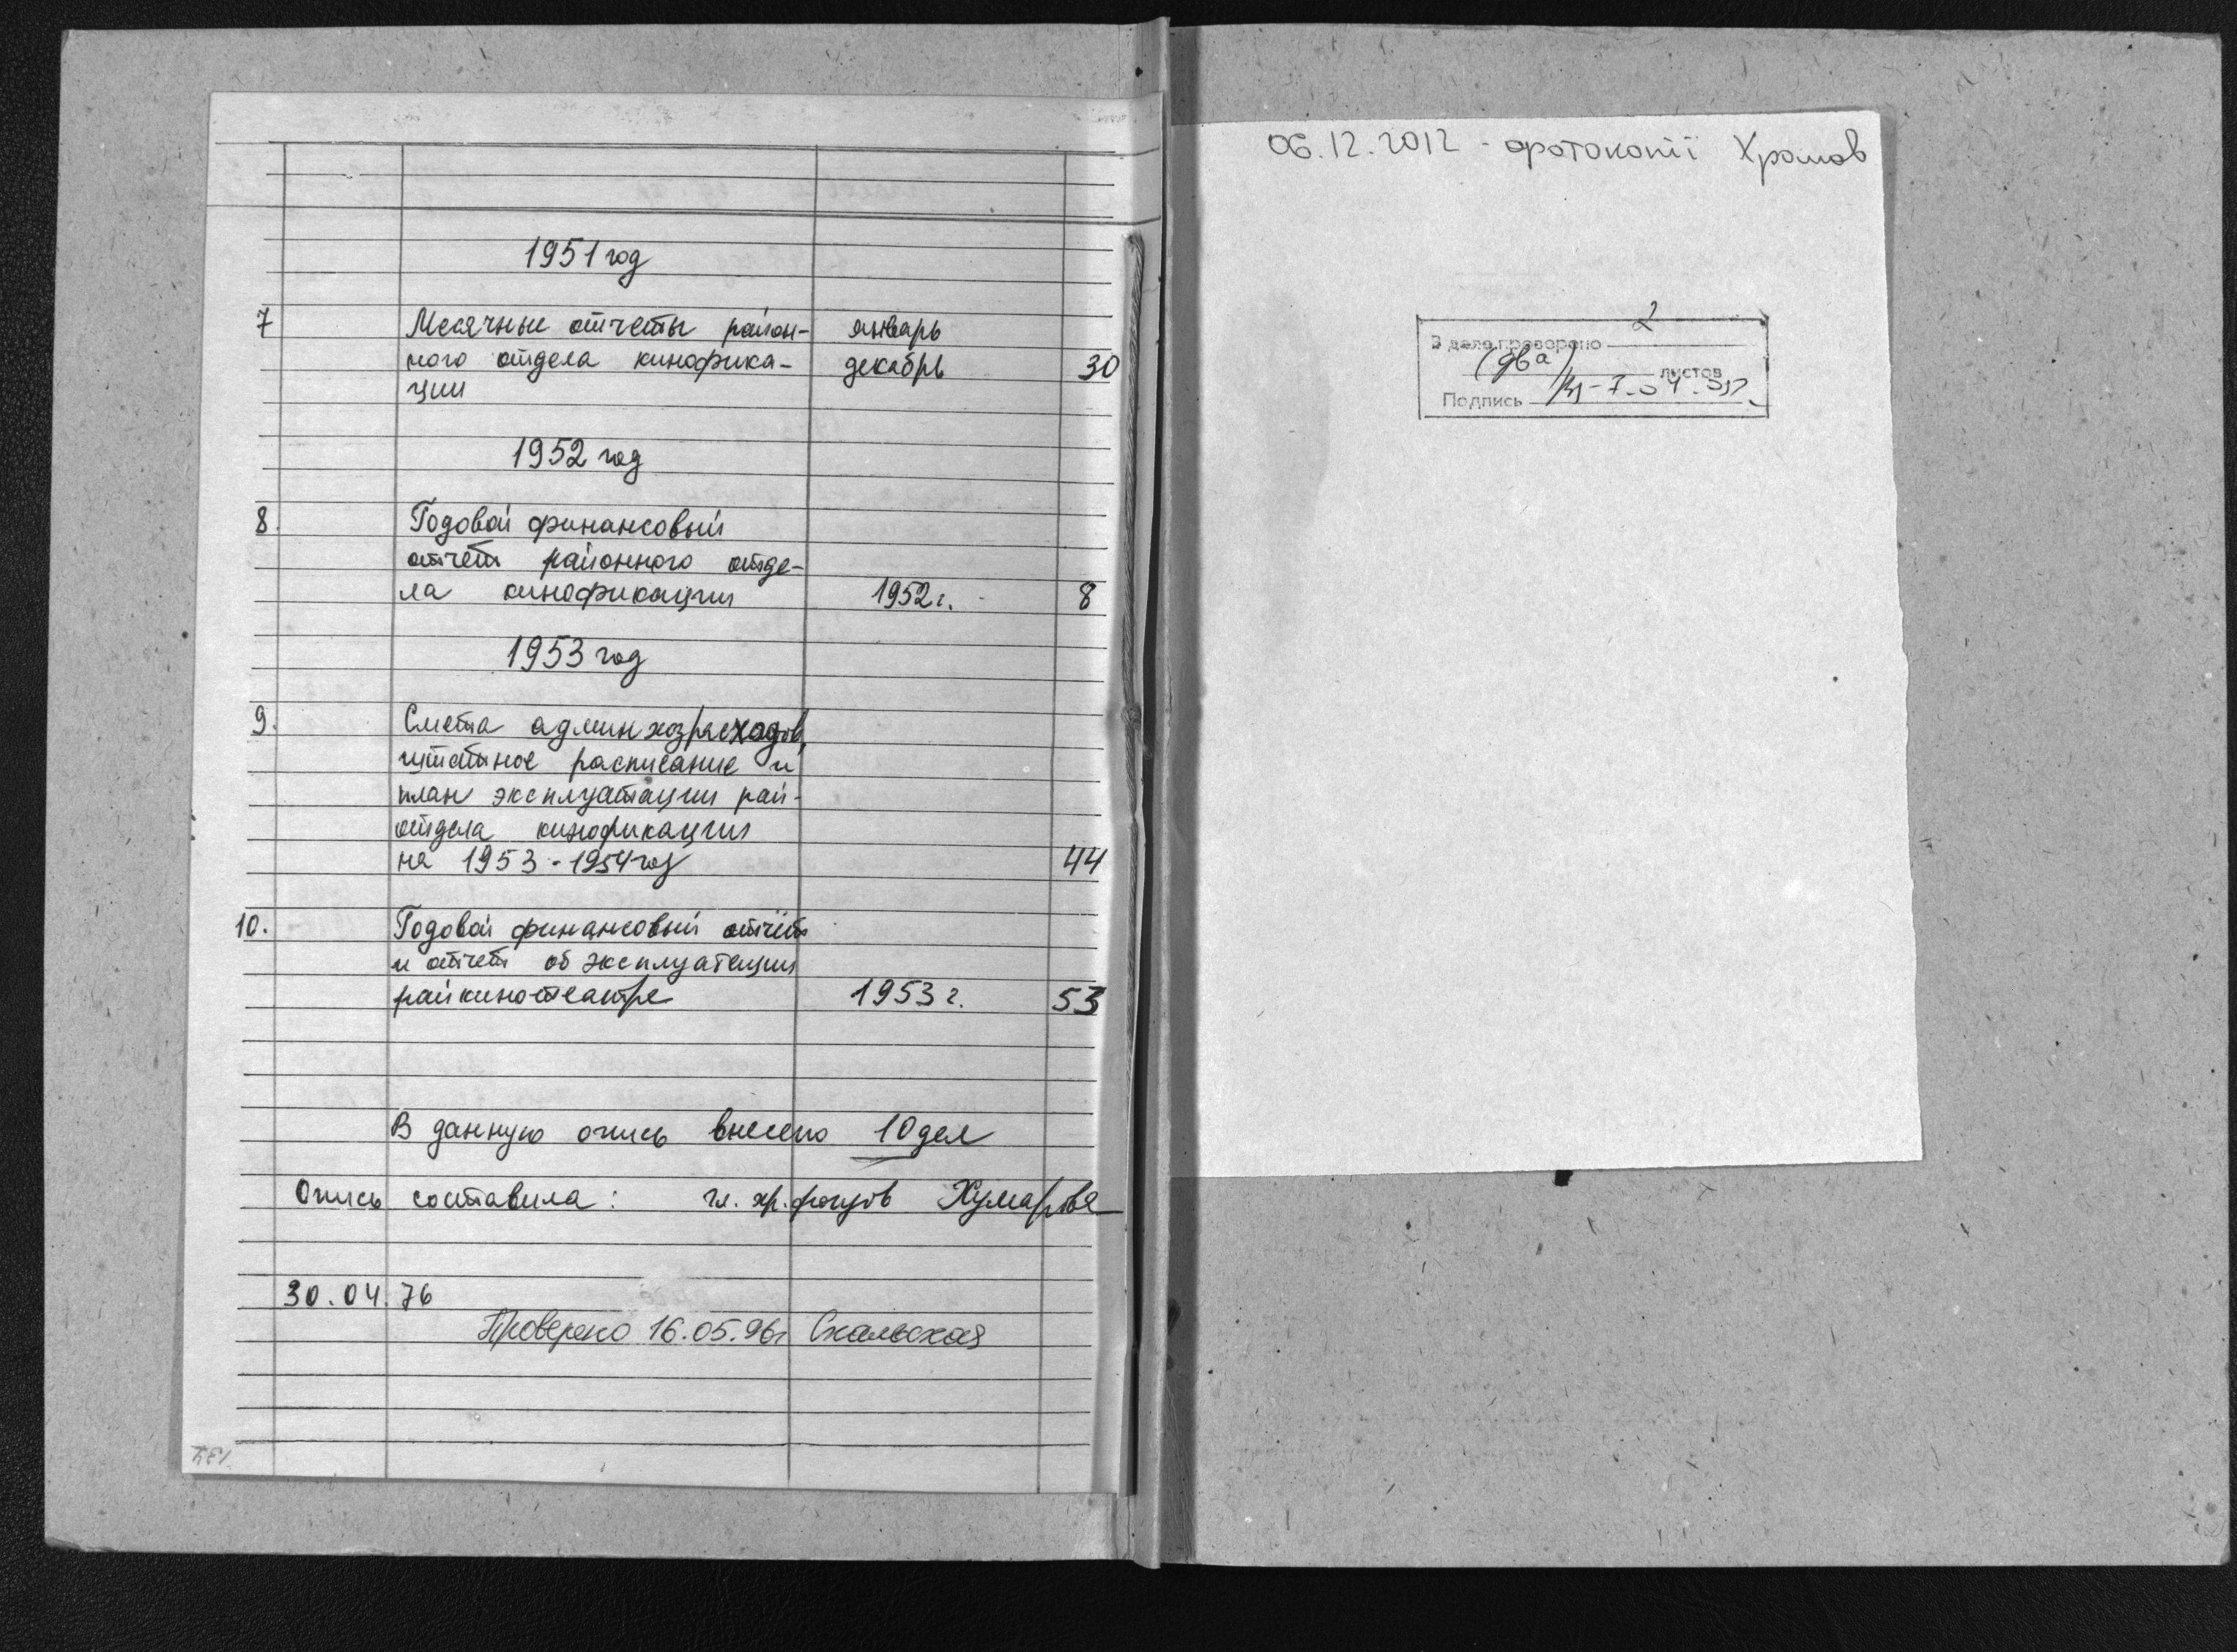 1951 год
7 Месячные отчеты район- январь
ного отдела кинофика- декабрь 30
ции
1952 год
8. Годовой финансовый
отчет районного отде-
ла кинофикации 1952 г. 8
1953 год
9. Смета админхозрасходов,
штатное расписание и
план эксплуатации рай-
отдела кинофикации
на 1953-1954 год 44
10. Годовой финансовый отчёт
и отчет об эксплуатации
райкинотеатре 1953 г. 53
В данную опись внесено 10 дел
Опись составила: гл. хр. фондов
30.04.76
Проверено 16.05.96г Скальская
06.12.2012 - фотокопії Храмов
В деле проверено 2
(два) листов
Подпись